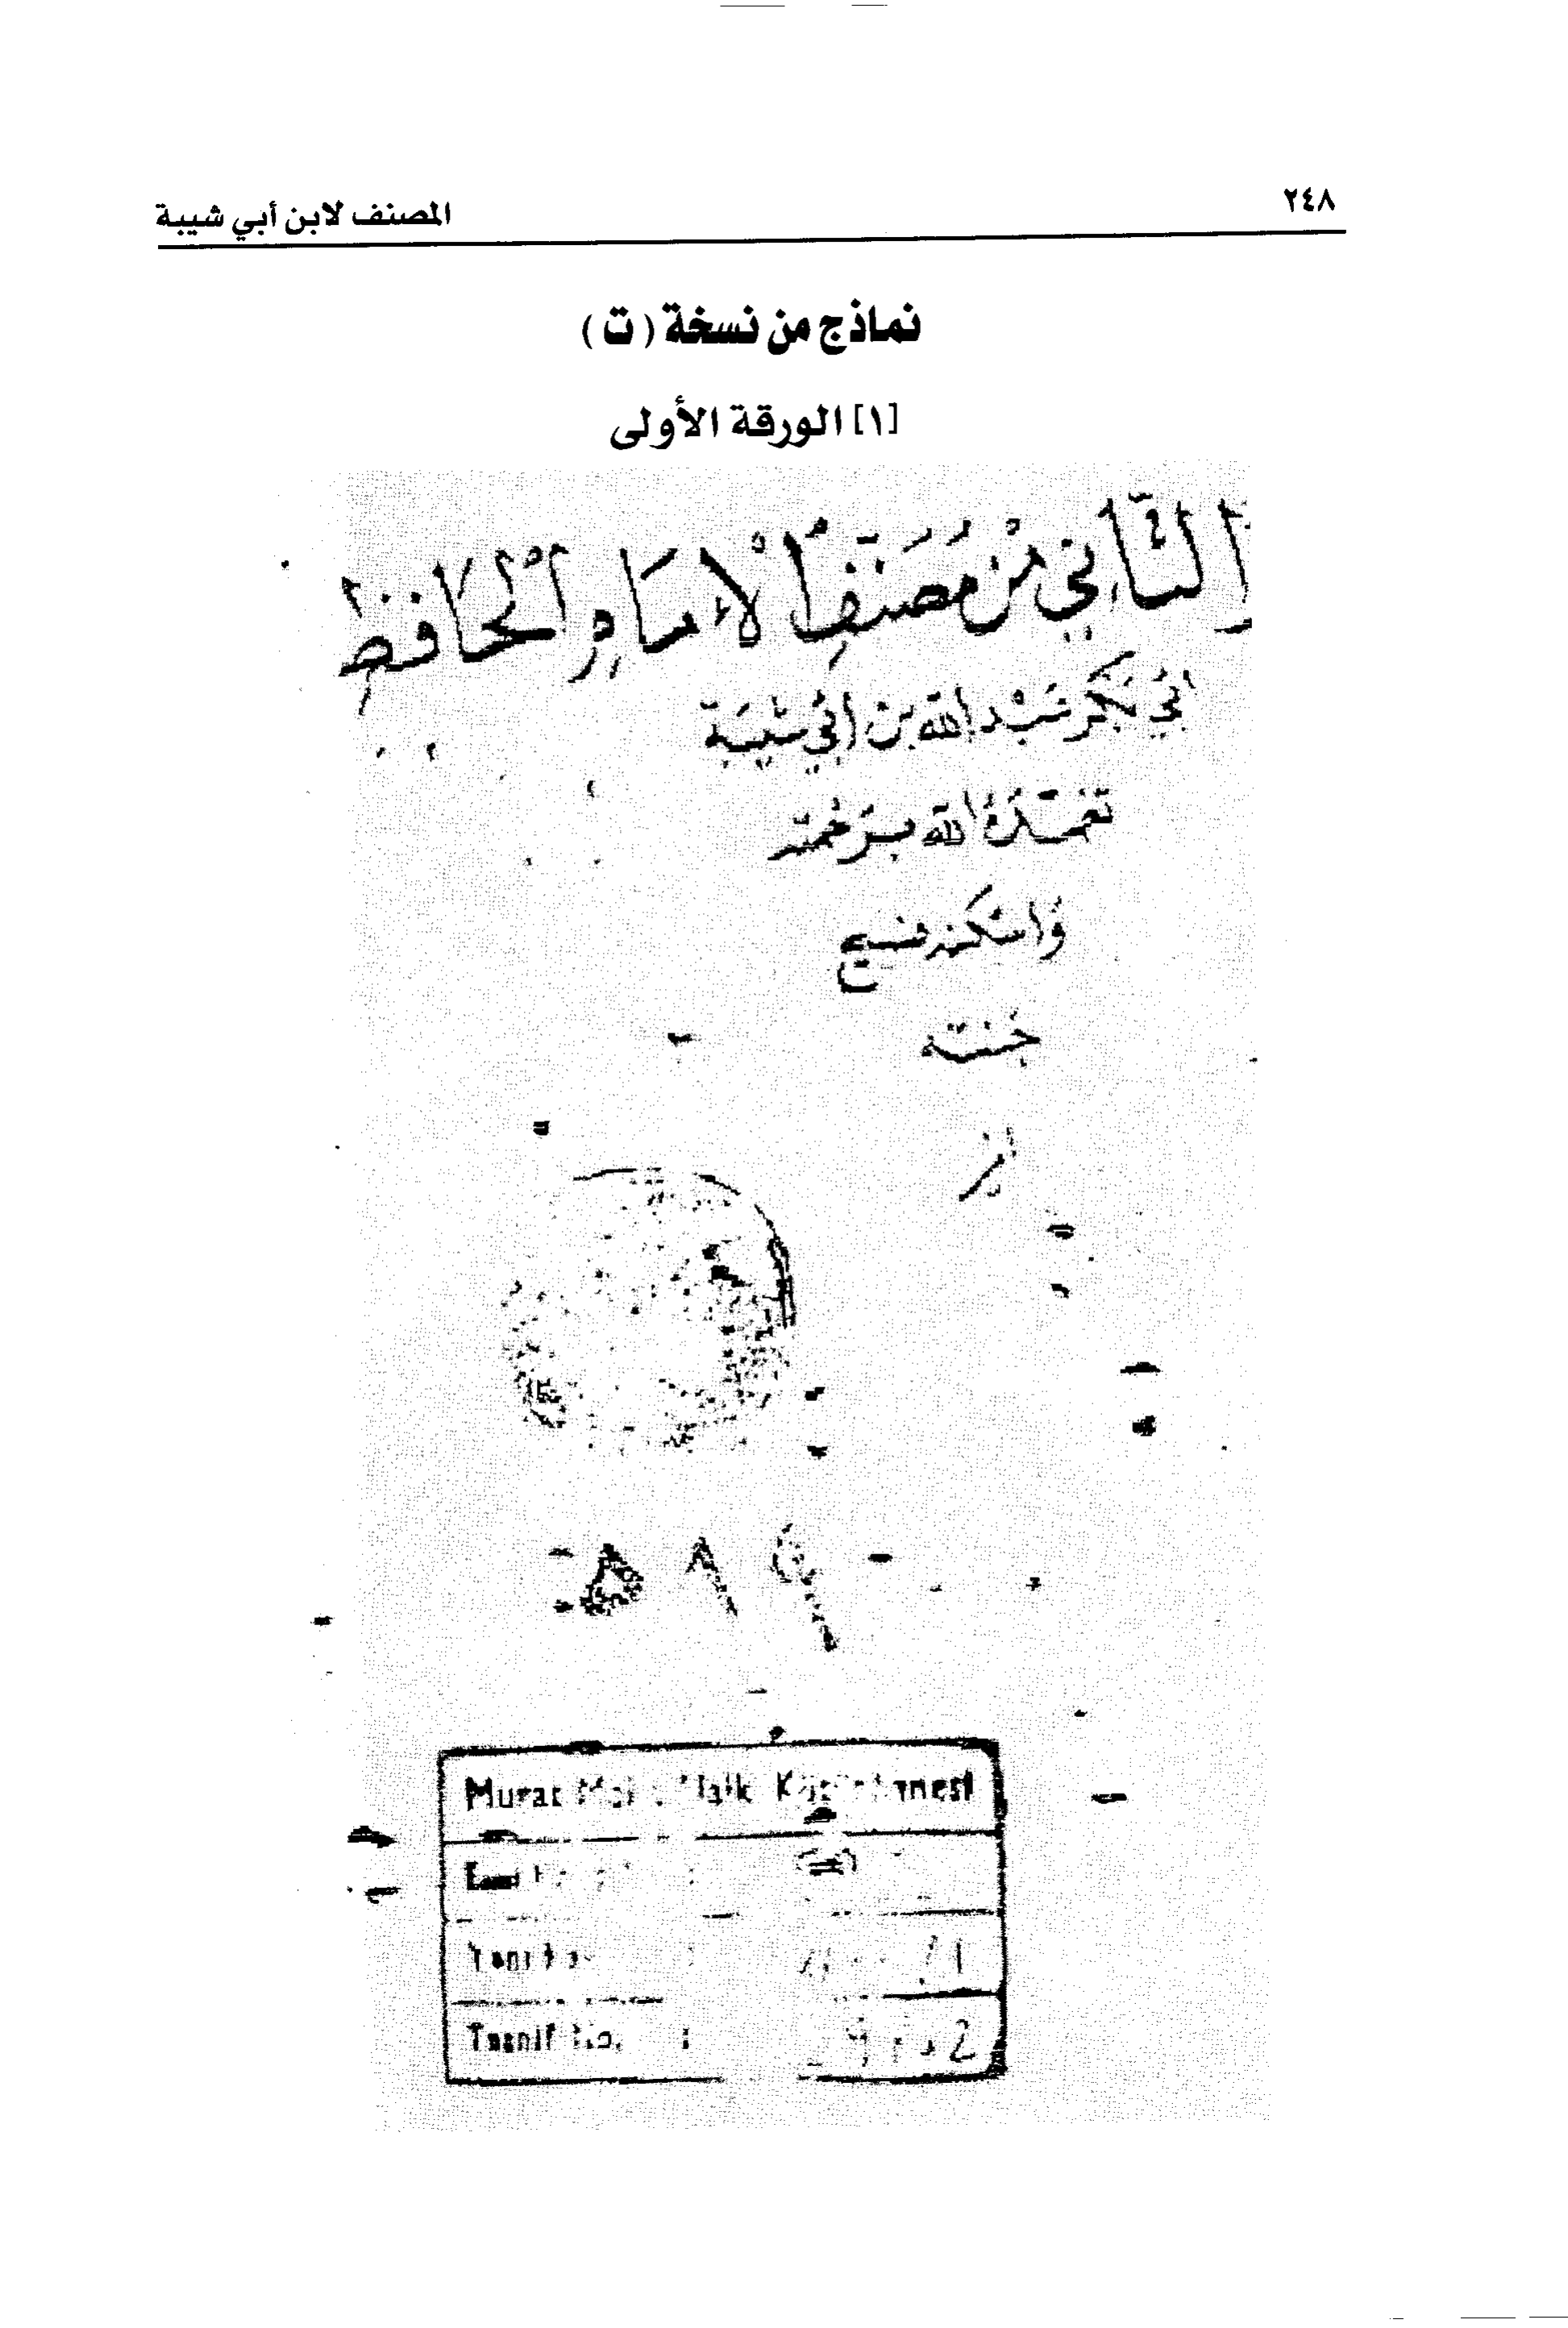 ٢٤٨
المصنف لابن أبي شيبة
نماذج من نسخة (ت)
[١] الورقة الأولى
الثاني من مصنف الإمام الحافظ
ابي بكر عبد الله بن ابي شيبة
تغمده الله برحمته
واسكنه فسيح
جنته
Murat Halk
Tasnif No. :